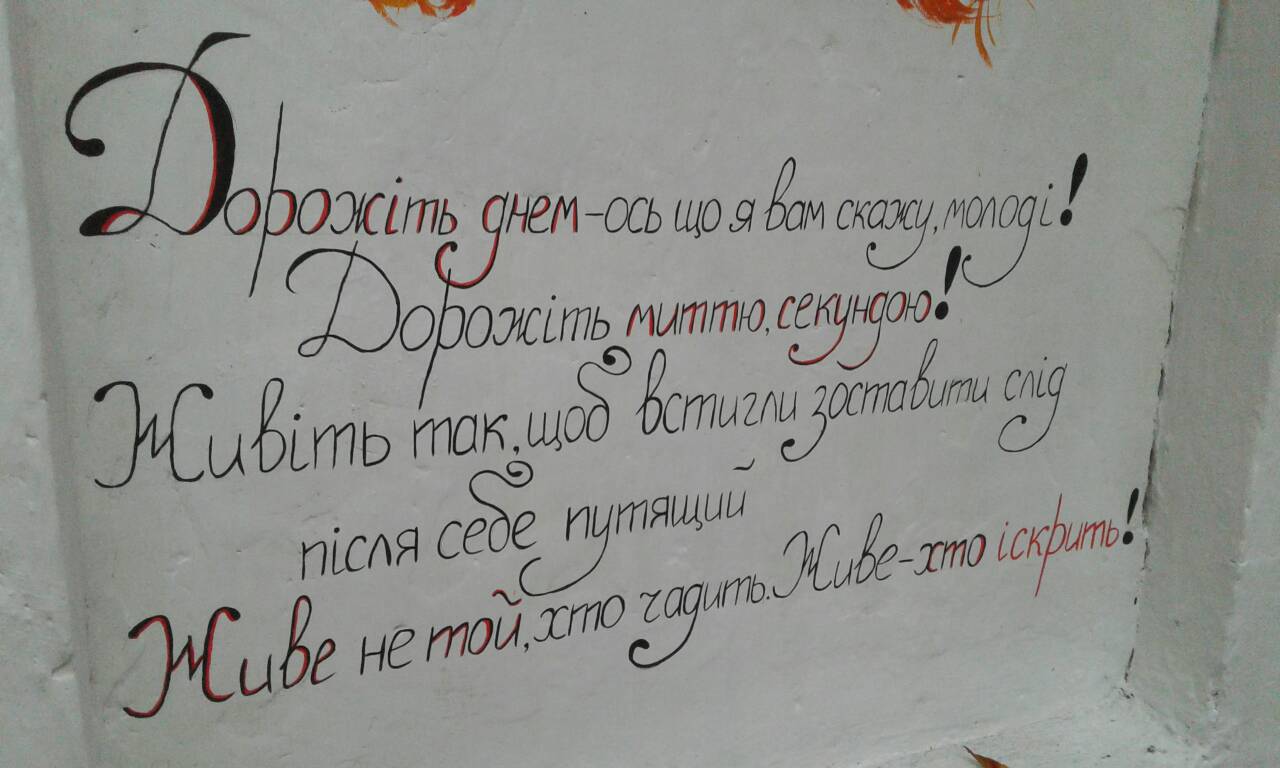 Дорожіть днем-ось що я вам скажу, молоді!
Дорожіть миттю, секундою!
Живіть так, щоб встигли зоставити слід
після себе путящий
Живе не той, хто чадить. Живе-хто іскрить!